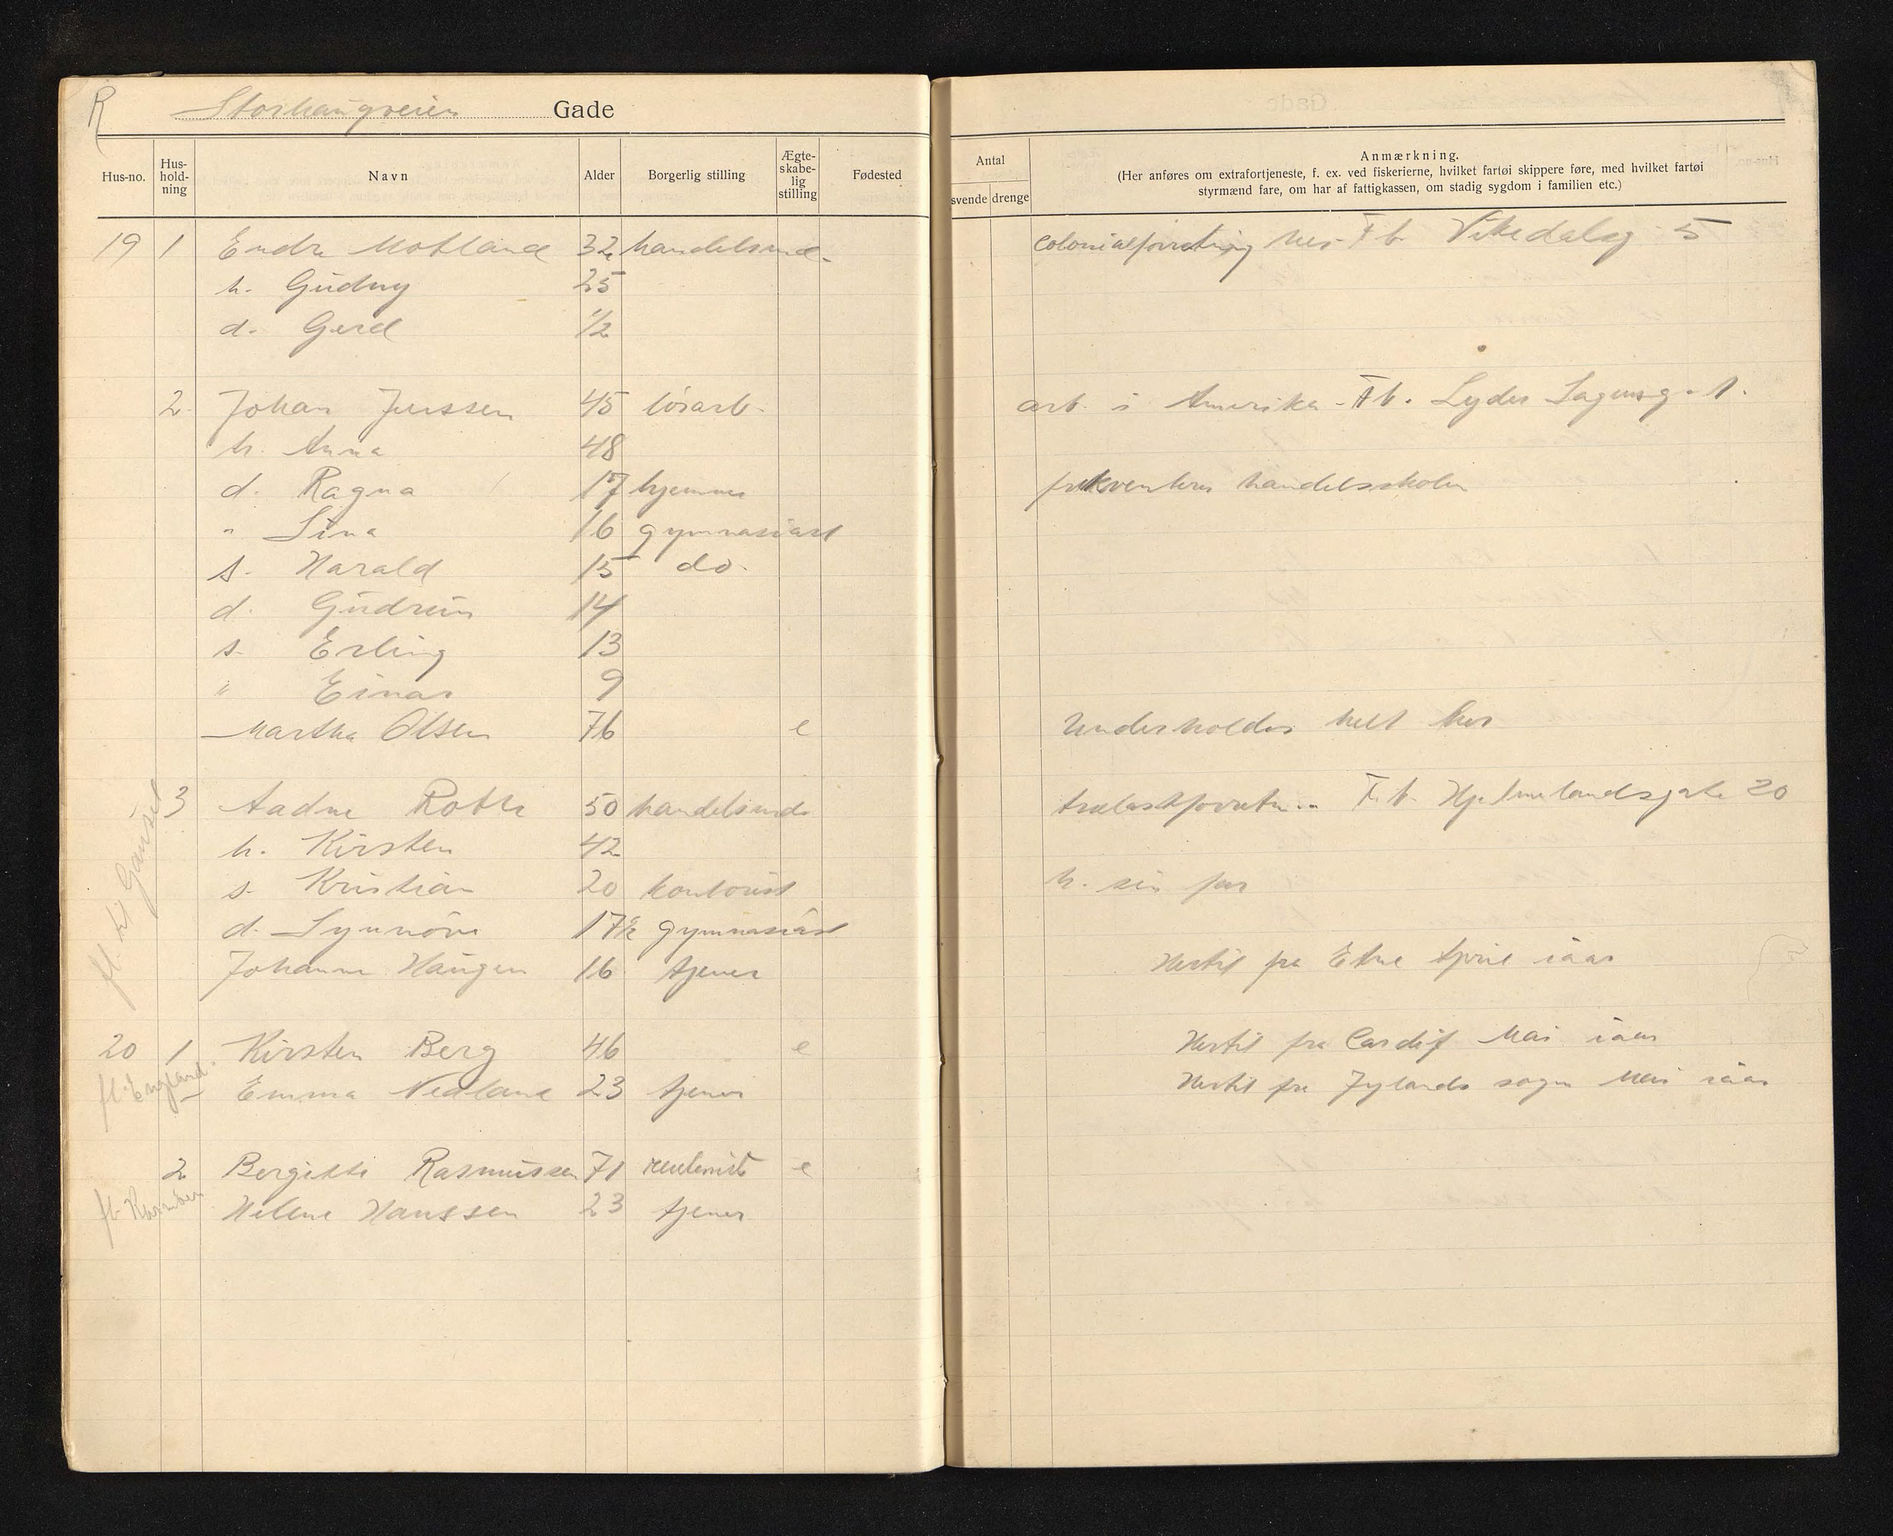 R Storhaugveien Gade
Hus-no. Hus-hold-ning Navn Alder Borgerlig stilling Ægte-skabe-lig stilling Fødested Antal svende drenge Anmærkning.
(Her anføres om extrafortjeneste, f. ex. ved fiskerierne, hvilket fartøi skippere føre, med hvilket fartøi
styrmænd fare, om har af fattigkassen, om stadig sygdom i familien etc.)
19 1 Endre Motland 32 handelsmd. Colonialforretning her F.b. Vikedalsg 5
h. Gudny 25
d. Gerd 1/2
2. Johan Jenssen 45 løsarb. arb. i Amerika - F b. Lyder Sagensg. 1.
h. Anna 48
d. Ragna 17 hjemme frekventerer handelsskolen
" Sina 16 gymnasiast
s. Harald 15 do.
d. Gudrun 14
s. Erling 13
" Einar 9
Martha Olsen 76 e Underholdes helt her
3 Aadne Roth 50 handelsmd. trælastforretn. F.b. Hjelmelandsgate 20
h. Kirsten 42
s. Kristian 20 kontorist h. sin far
d. Synnøve 17 1/2 gymnasiast
Johanne Haugen 16 tjener Hertil fra Etne April iaar
fl. til Gausel
20 1 Kirsten Berg 46 e Hertil fra Cardif Mai iaar
fl. England. Emma Nedland 23 tjener Hertil fra Jylands sogn Mai iaar
2 Bergitte Rasmussen 71 rentenist e
fl. Helene Hanssen 23 tjener